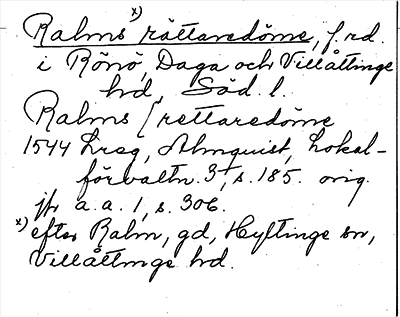 Ralms x) rättaredöme, f.rd.
i Rönö, Daga och Villåttinge
hd, Söd. l.
Ralms [rettaredöme
1544 Lreg, Almquist, Lokal-
förvaltn. 3, s. 185. orig.
jfr a.a. 1, s. 306.
x) efter Ralm, gd, Hyltinge sn,
Villåttinge hd.